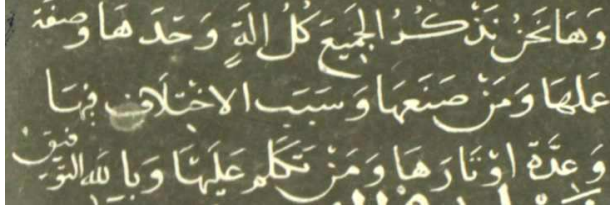 وَهَا نَحْنُ نَذْكُرُ الجَمِيعَ كُلُ الَةٍ وَحْدَهَا وَصِفَةَ
عَمَلِهَا وَمَنْ صَنَعَهَا وَسَبَبَ الاخْتِلَافِ فِيهَا
وَعِدَّة اوْتَارِهَا وَمَنْ تَكَلَّمَ عَلَيْهَا وَبِاللهِ التَّوْفِيقُ